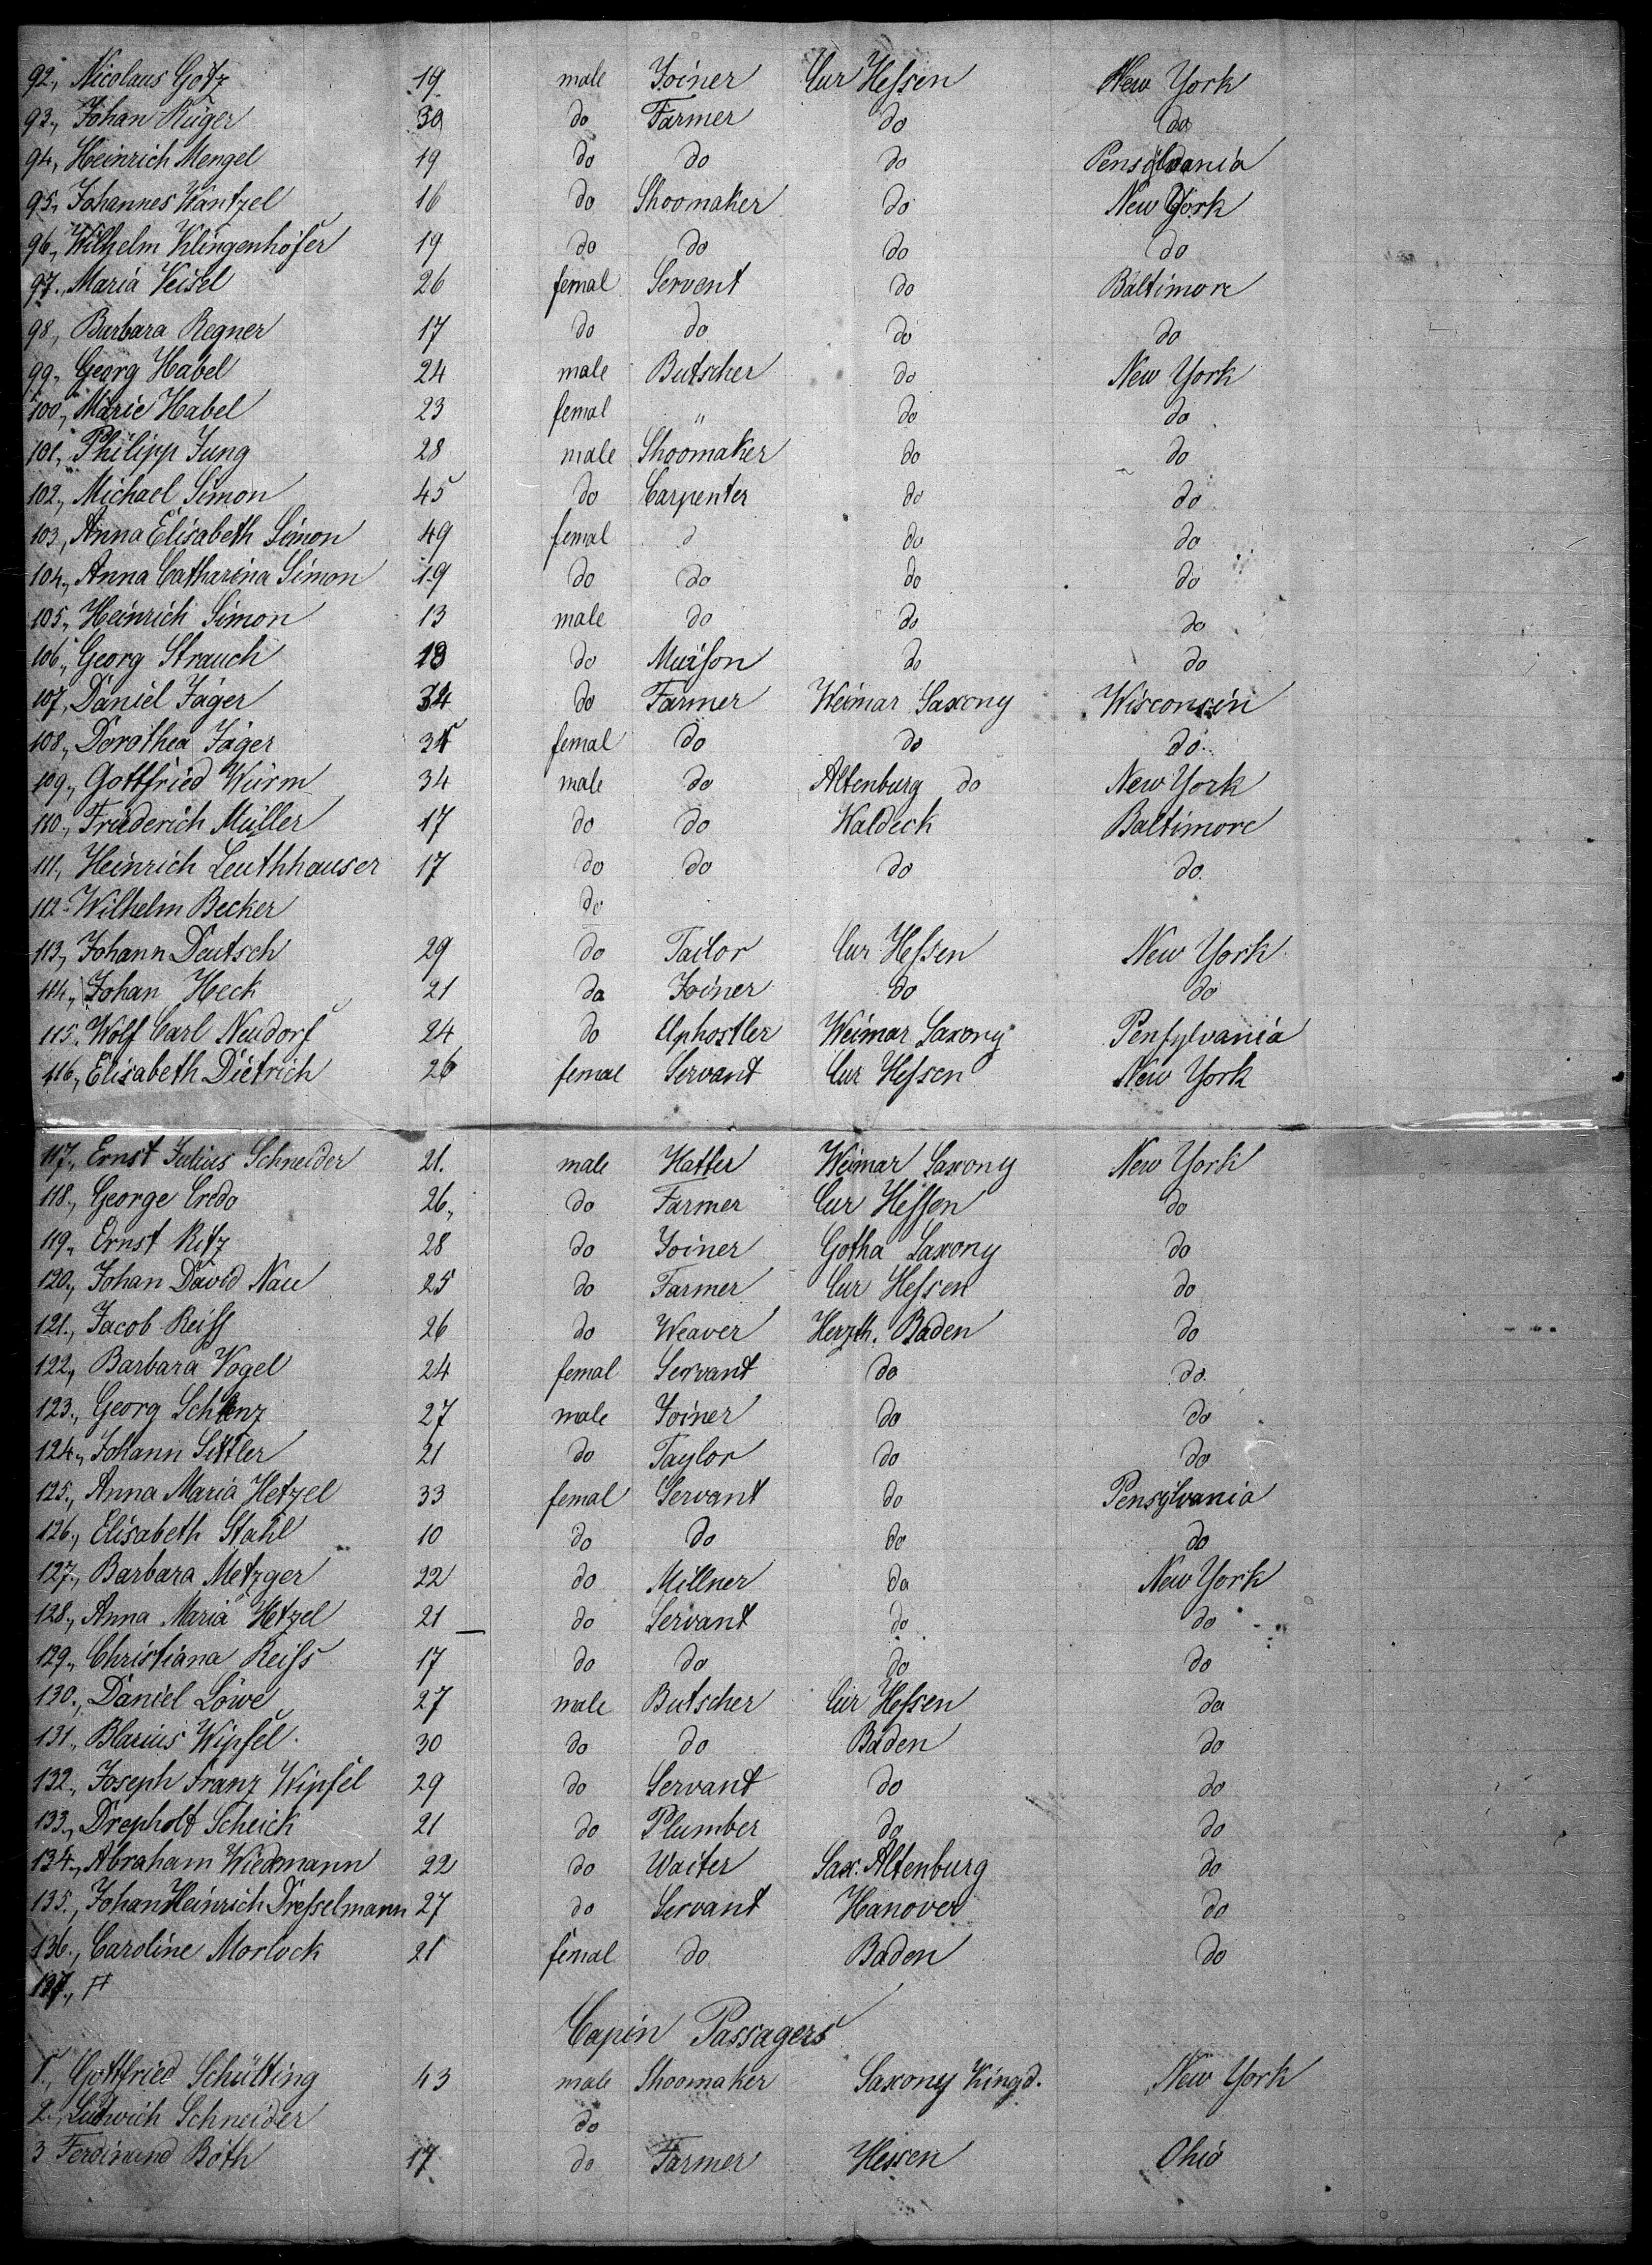 92., Nicolaus Götz 19 male Joiner Cur Hessen New York
93., Johan Rüger 30 do Farmer do do
94, Heinrich Mengel 19 do do do Pensylvania
95, Johannes Wantzel 16 do Shoomaker do New York
96, Wilhelm Klingenhöfer 19 do do do do
97., Maria Veisel 26 femal Servent do Baltimore
98, Barbara Regner 17 do do do do
99, Georg Habel 24 male Butscher do New York
100, Marie Habel 23 femal " do do
101, Philipp Jung 28 male Shoomaker do do
102, Michael Simon 45 do Carpenter do do
103, Anna Elisabeth Simon 49 femal do do
104, Anna Catharina Simon 19 do do do do
105, Heinrich Simon 13 male do do do
106, Georg Strauch 19 do Muison do do
107, Daniel Jäger 34 do Farmer Weimar Saxony Wisconsin
108, Dorothea Jäger femal do do do
109, Gottfried Würm 34 male do Altenburg do New York
110, Friederich Müller 17 do do Waldeck Baltimore
111, Heinrich Leuthhauser 17 do do do do
112 Wilhelm Becker do
113, Johann Deutsch 29 do Tailor Cur Hessen New York
114, Johan Heck 21 do Joiner do do
115, Wolf Carl Neudorf 24 do Uphostler Weimar Saxony Pensylvania
116, Elisabeth Dietrich 26 femal Servant Cur Hessen New York
117, Ernst Julius Schneider 21. male Hatter Weimar Saxony New York
118., George Credo 26, do Farmer Cur Hessen do
119, Ernst Ritz 28 do Joiner Gotha Saxony do
120., Johan David Nau 25 do Farmer Cur Hessen do
121., Jacob Reiss 26 do Weaver Herzth. Baden do
122, Barbara Vogel 24 femal Servant do do
123., Georg Schlenz 27 male Joiner do do
124., Johann Sittler 21 do Taylor do do
125., Anna Maria Hetzel 33 femal Servant do Pensylvania
126., Elisabeth Stahl 10 do do do do
127., Barbara Metzger 22 do Millner do New York
128., Anna Maria Hetzel 21 do Servant do do
129., Christiana Reiss 17 do do do do
130., Daniel Löwe 27 male Butscher Cur Hessen do
131., Blasius Wipfel 30 do do Baden do
132., Joseph Franz Wipfel 29 do Servant do do
133., Drepholt Scheick 21 do Plumber do do
134., Abraham Wiedemann 22 do Waiter Sax. Altenburg do
135., Johan Heinrich Dresselmann 27 do Servant Hanover do
136., Caroline Morlock 21 femal do Baden do
137.,
Capin Passagers
1., Gottfried Schütting 43 male Shoomaker Saxony Kingd. New York
2., Ludwich Schneider do
3 Ferdinand Böth 17 do Farmer Hessen Ohio